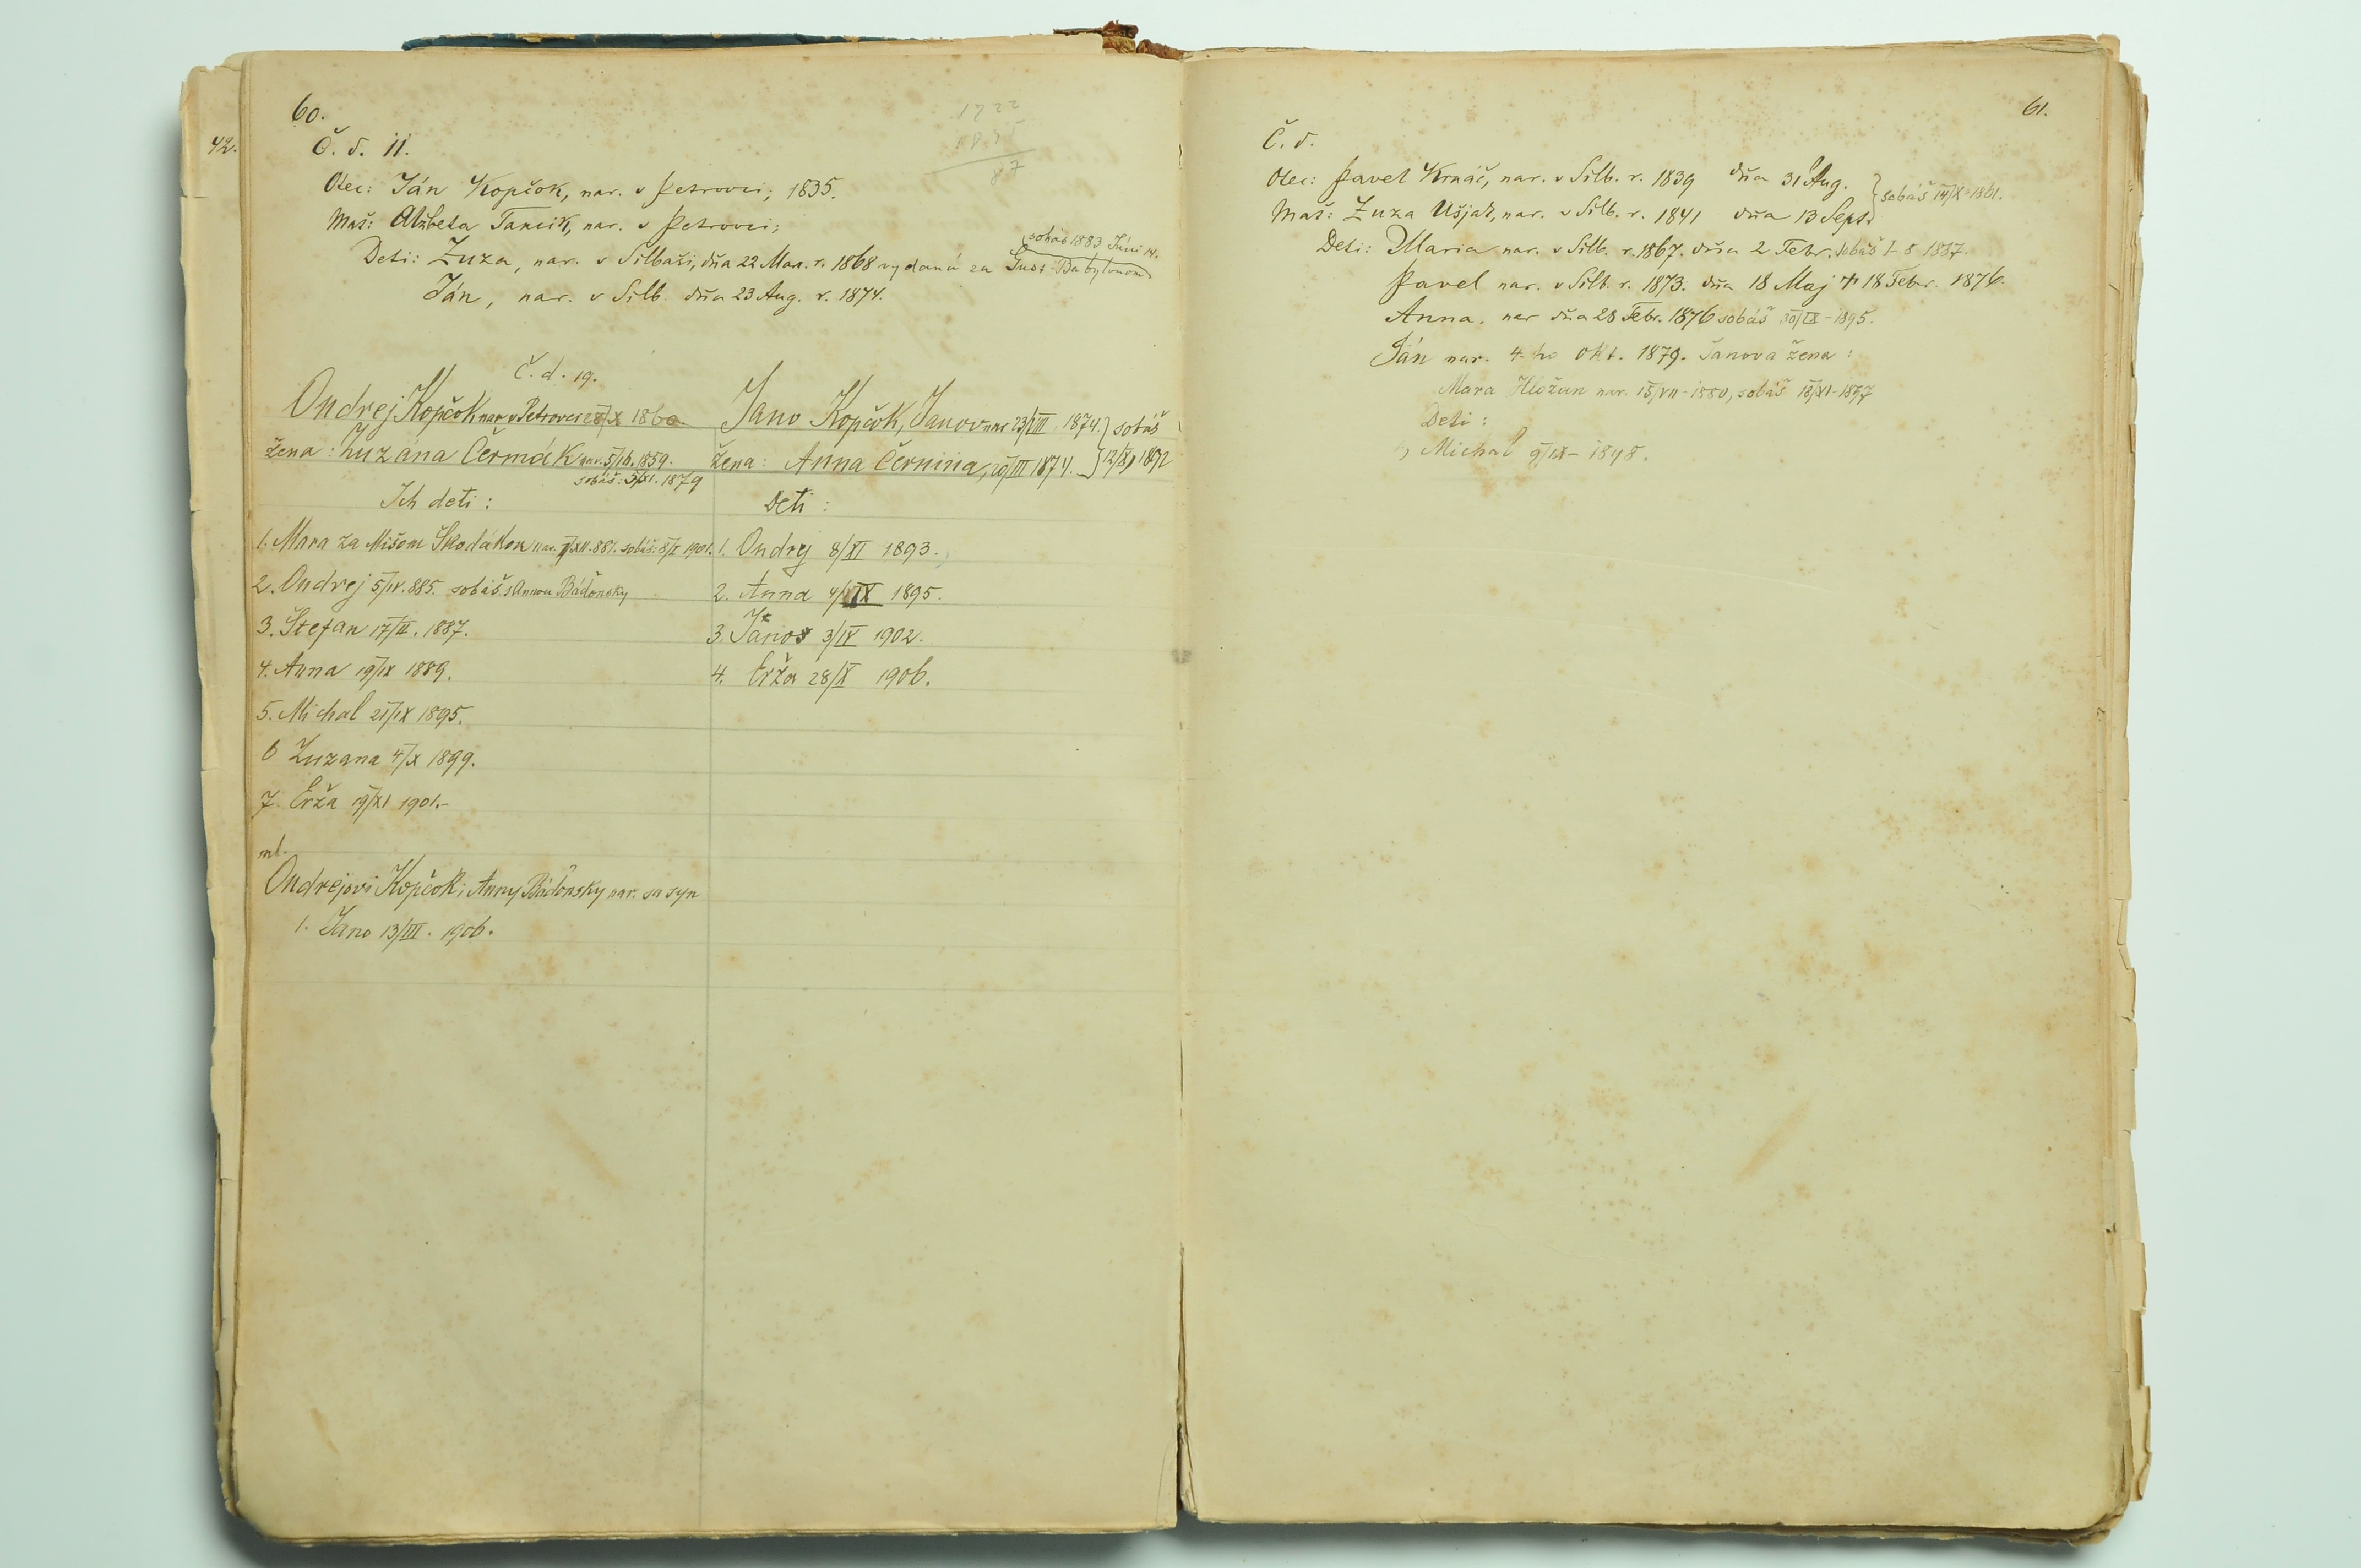 60.
42.
Č. d. 11.
Otec: Ján Kopčok, nar. v Petrovci, 1835.
Mať: Alžbeta Tancik, nar. v Petrovci;
sobáš 1883 Júni 14.
Deti: Zuza, nar. v Silbaši, dňa 22 Mar. r. 1868 vydaná za Babylonom
Ján, nar. v Silb. dňa 23 Aug. r. 1874.
Č. d. 19.
Ondrej Kopčok nar. v Petrovci 28/X 1860.
žena: Zuzana Čermák nar. 1859.
sobáš: 5/XI. 1879
Ich deti:
1. Mara za Mišom Škodákom nar. XII. 881. sobáš: 8/I 1901.
2. Ondrej 5/IV. 885. sobáš s Annou Bádonsky
3. Štefan 17/II. 1887.
4. Anna 19/IX 1889.
5. Michal 21/IX 1895.
6 Zuzana 4/X 1899.
7. Erža 19/XI 1901.-
ml.
Ondrejovi Kopčok i Anny Bádonsky nar. sa syn
1. Jano 13/III. 1906.
Jano Kopčok, Janov nar 23/VIII. 1874. } sobáš
žena: Anna Černina, 29/III 1874. } 12/X 1892
Deti:
1. Ondrej 8/XI 1893.
2. Anna 1895.
3. Janos 3/IX 1902.
4. Erža 28/X 1906.
61.
Č. d.
Otec: Pavel Krnáč, nar. v Silb. r. 1839 dňa 31 Aug. } sobáš 14/X 1861.
Mať: Zuza Ušjak, nar. v Silb. r. 1841 dňa 13 Sept.
Deti: Maria nar. v Silb. r. 1867. dňa 2 Febr. sobáš 1887.
Pavel nar. v Silb. r. 1873. dňa 18 Maj † 18 Febr. 1876.
Anna, nar dňa 28 Febr. 1876 sobáš 30/IX - 1895.
Ján nar. 4-ho Okt. 1879. Janova žena:
Mara Hložan nar. 15/VII - 1880, sobáš 18/XI - 1897
Deti:
Michal 9/IX - 1898.